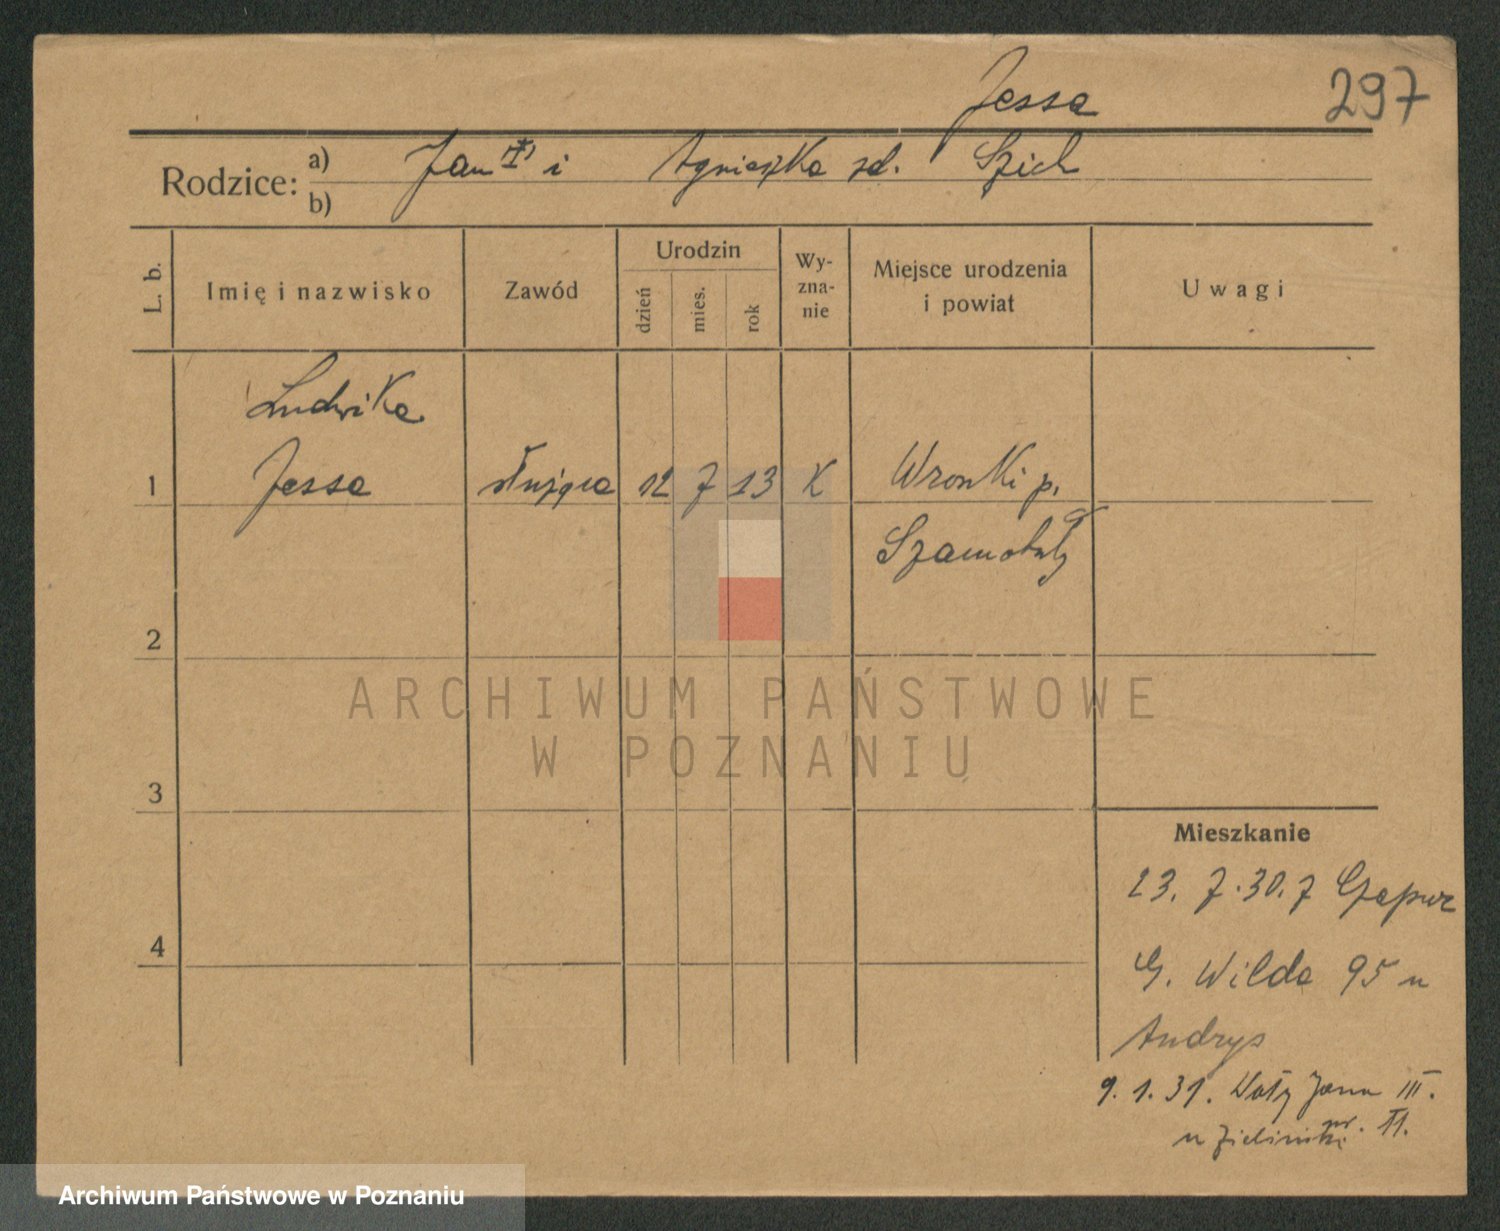 Jessa
297
Rodzice: a) Jan i Agnieszka zd. Szich
b)
L. b.
Imię i nazwisko
Zawód
Urodzin
dzień
mies.
rok
Wy-
zna-
nie
Miejsce urodzenia
i powiat
Uwagi
Ludwika
1 Jessa służąca 12 7 13 K Wronki p.
Szamotuły
2
ARCHIWUM PAŃSTWOWE
W POZNANIU
3
Mieszkanie
23. 7. 30. z
4
G. Wilda 95 u
Andrys
9. 1. 31. Wały Jana III.
u nr. 11.
Archiwum Państwowe w Poznaniu